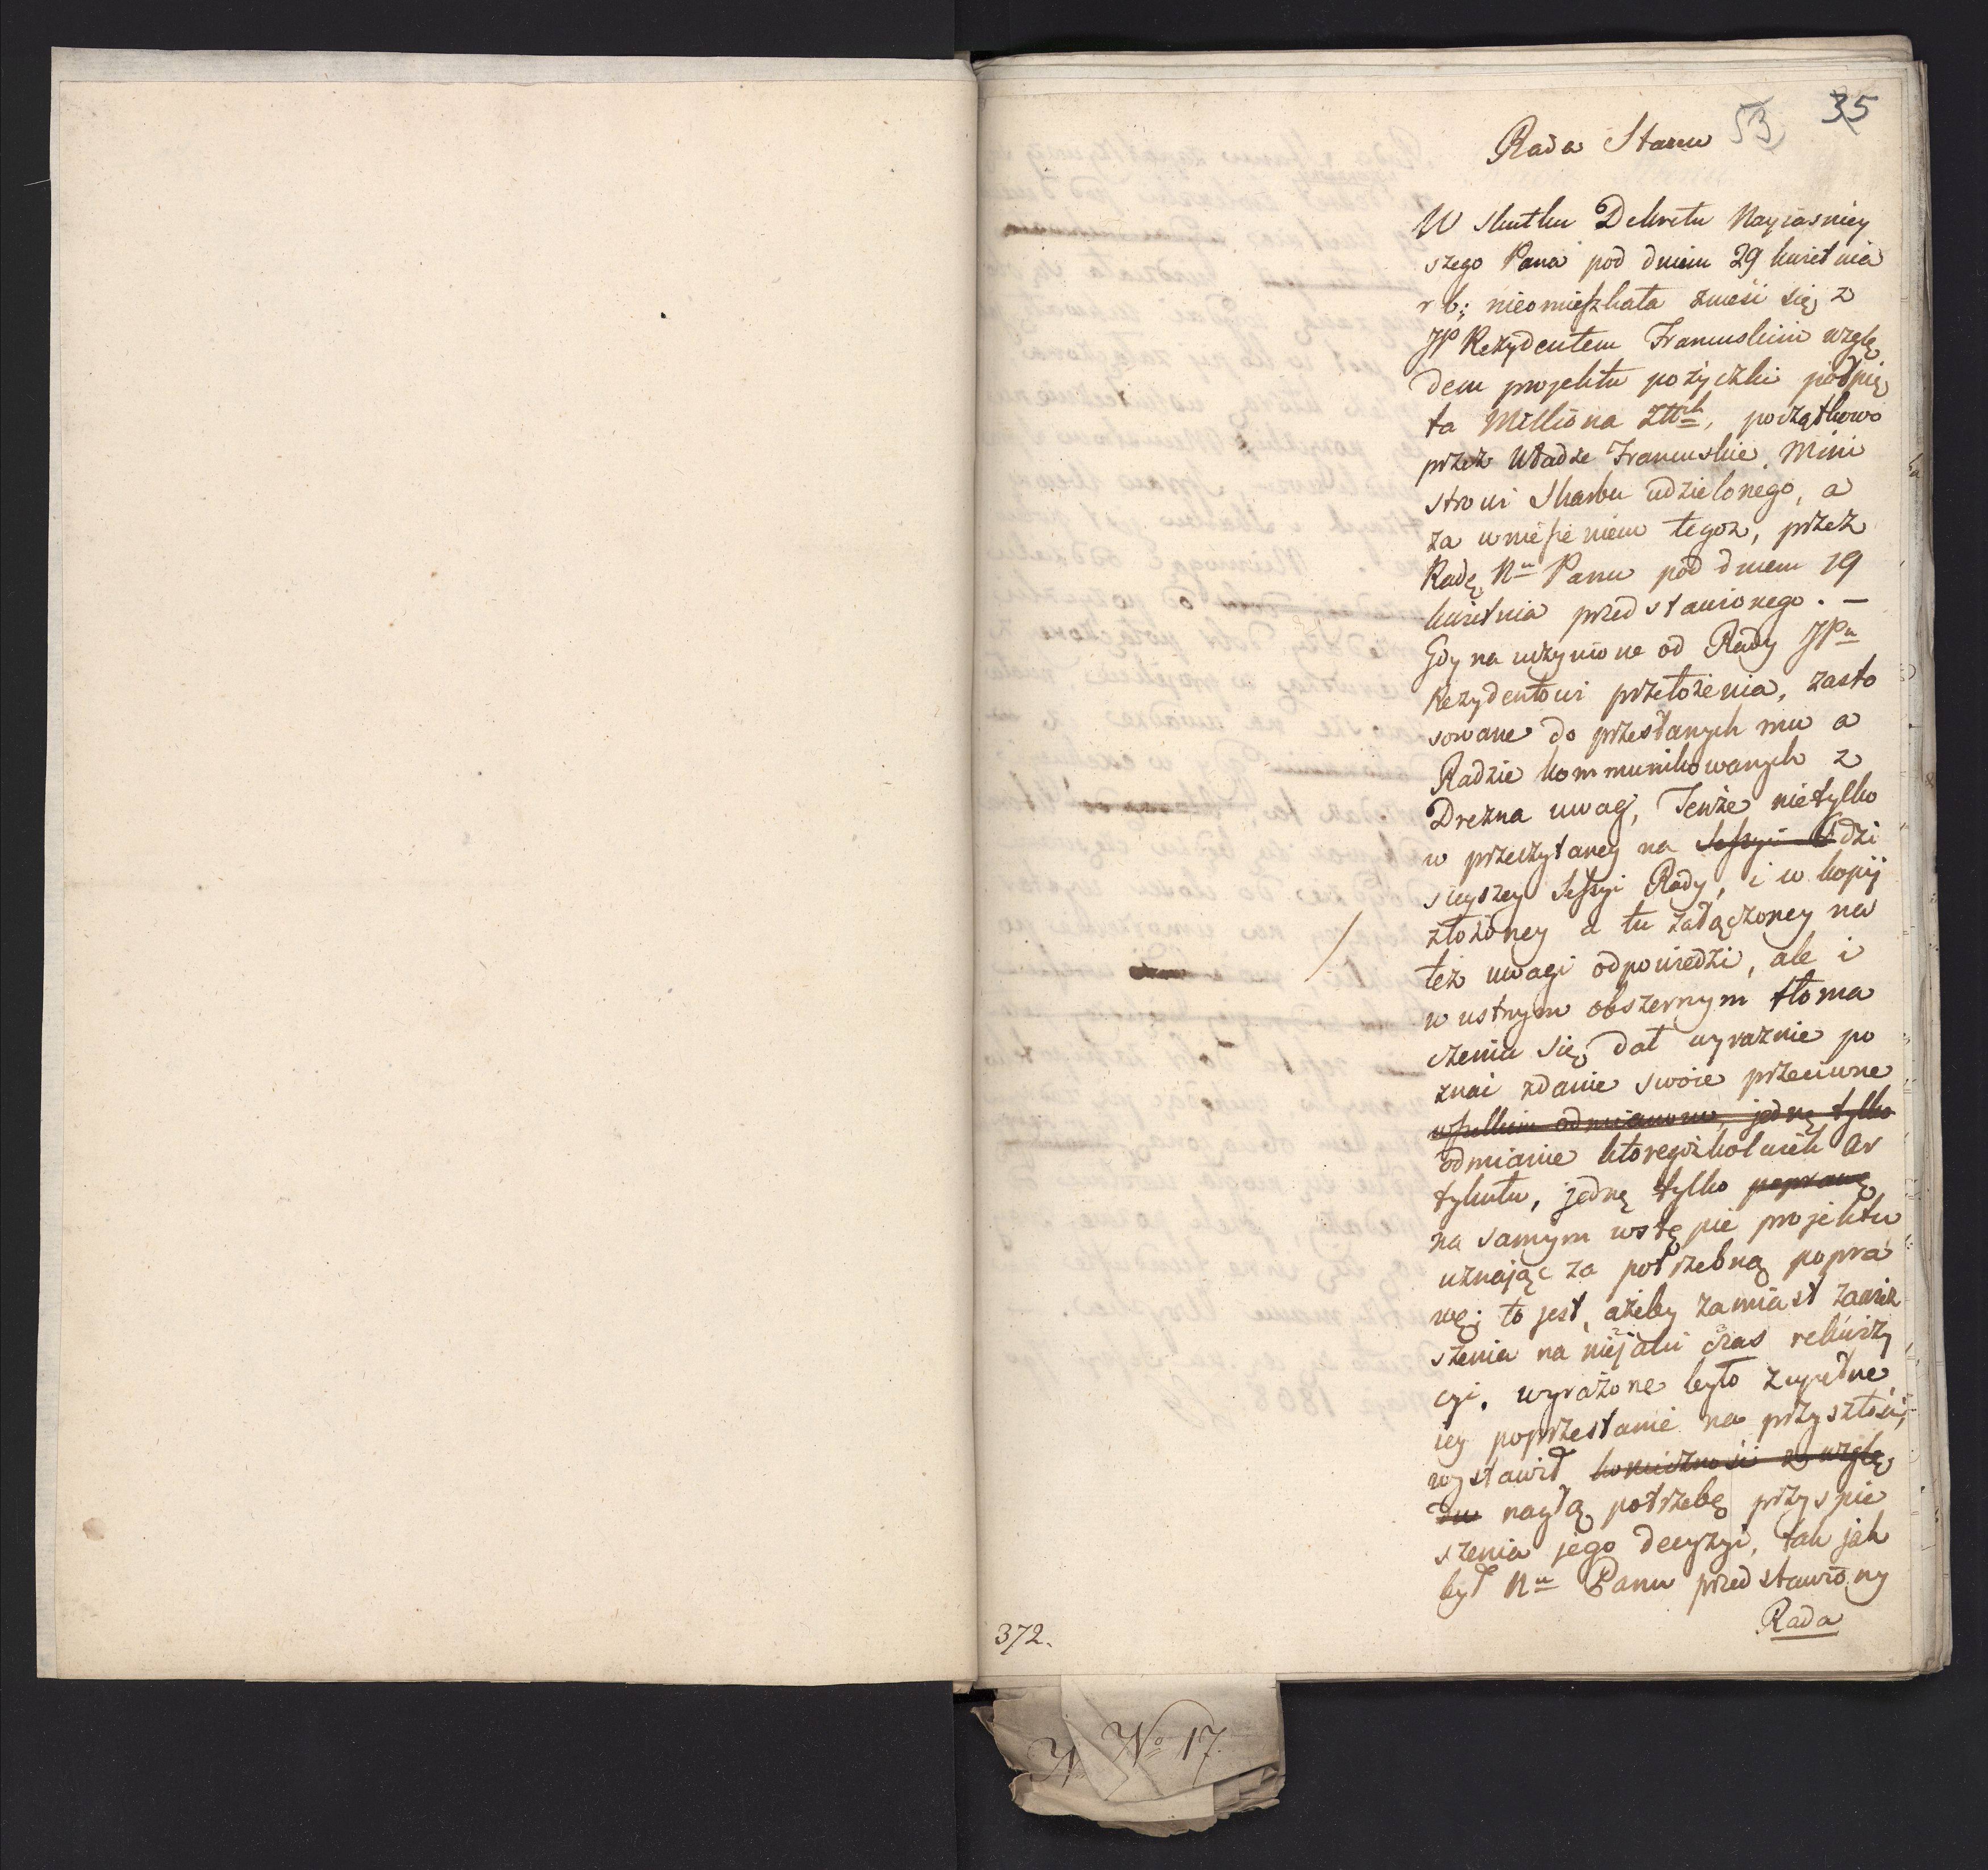 35
53
Rada Stanu
W skutku Dekretu Nayiasniey
szego Pana pod dniem 29 kwietnia
r b; nieomieszkała znieść się z
JP Rezydentem Francuskim wzglę
dem projektu pożyczki półpię
ta Milliona Złtch, początkowo
przez Władze Francuskie Mini
strowi Skarbu udzielonego, a
za wniesieniem tegoż, przez
Radę Nu Panu pod dniem 19
kwietnia przedstawionego. —
Gdy na uczynione od Rady JPu
Rezydentowi przełożenia, zasto
sowane do przesłanych mu a
Radzie kommunikowanych z
Drezna uwag, Tenże nietylko
w przeczytaney na Sessyi dzi
sieyszey Sessyi Rady, i w kopij
złożoney a tu załączoney na
też uwagi odpowiedzi, ale i
w ustnym obszernym tłoma
czeniu się, dał wyraznie po
znać zdanie swoie przeciwne
wszelkim odmianom, jedną tylko
odmianie ktoregożkolwiek Ar
tykułu, jedną tylko poprawę
na samym wstępie projektu
uznając za potrzebną popra
wę; to jest, ażeby zamiast zawie
szenia na niejaki czas rekwizy
cyi, wyrażone było zupełne
iey poprzestanie na przyszłość,
wystawił konieczność z wzglę
du nagłą potrzebę przyspie
szenia jego decyzyi, tak jak
był Nu Panu przedstawiony
Rada
372.
No 17.